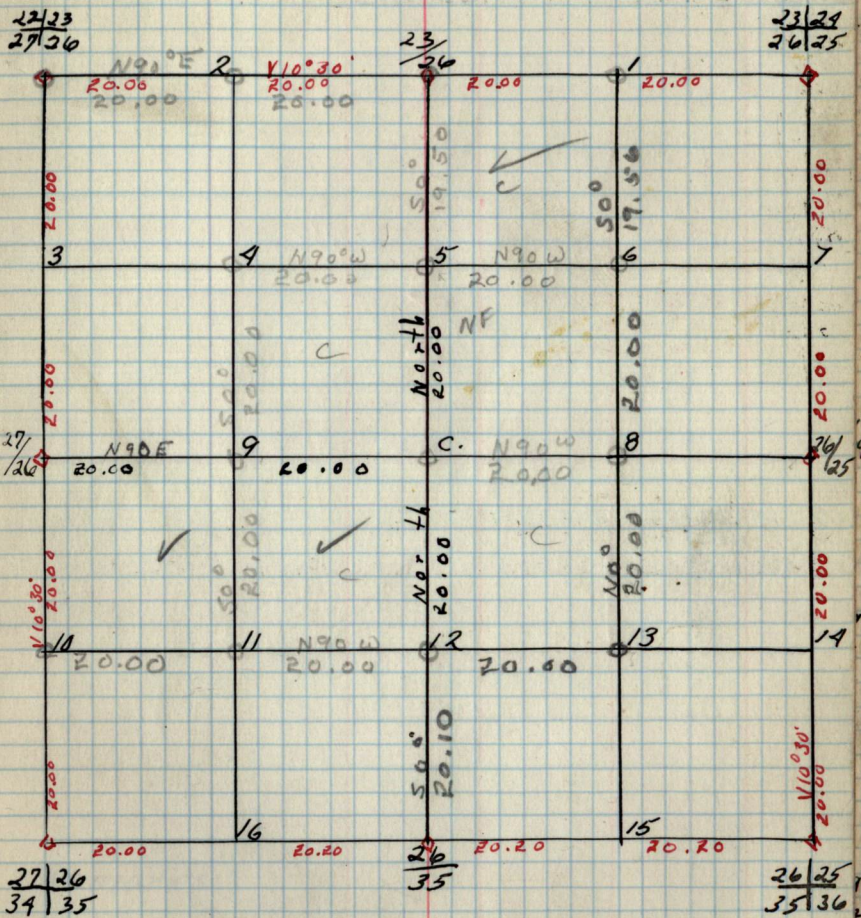 22|23
27|26
23/26
23|24
26|25
N90°E 2 V10°30' 1
20.00 20.00 20.00 20.00
20.00 20.00
20.00
S0° 19.50
C
S0° 19.56
20.00
3 4 N90°W 5 N90W 6 7
20.00 20.00
20.00
S0° 20.00
C
North 20.00
NF
20.00
20.00
C
27/26 N90E 9 C. N90W 8 26/25
20.00 20.00 20.00
V10°30' 20.00
S0° 20.00
C
North 20.00
C
N0° 20.00
20.00
10 11 N90W 12 13 14
20.00 20.00 20.00
20.00
S0° 20.10
V10°30' 20.00
16 15
20.00 20.20 26/35 20.20 20.20
27|26
34|35
26|25
35|36